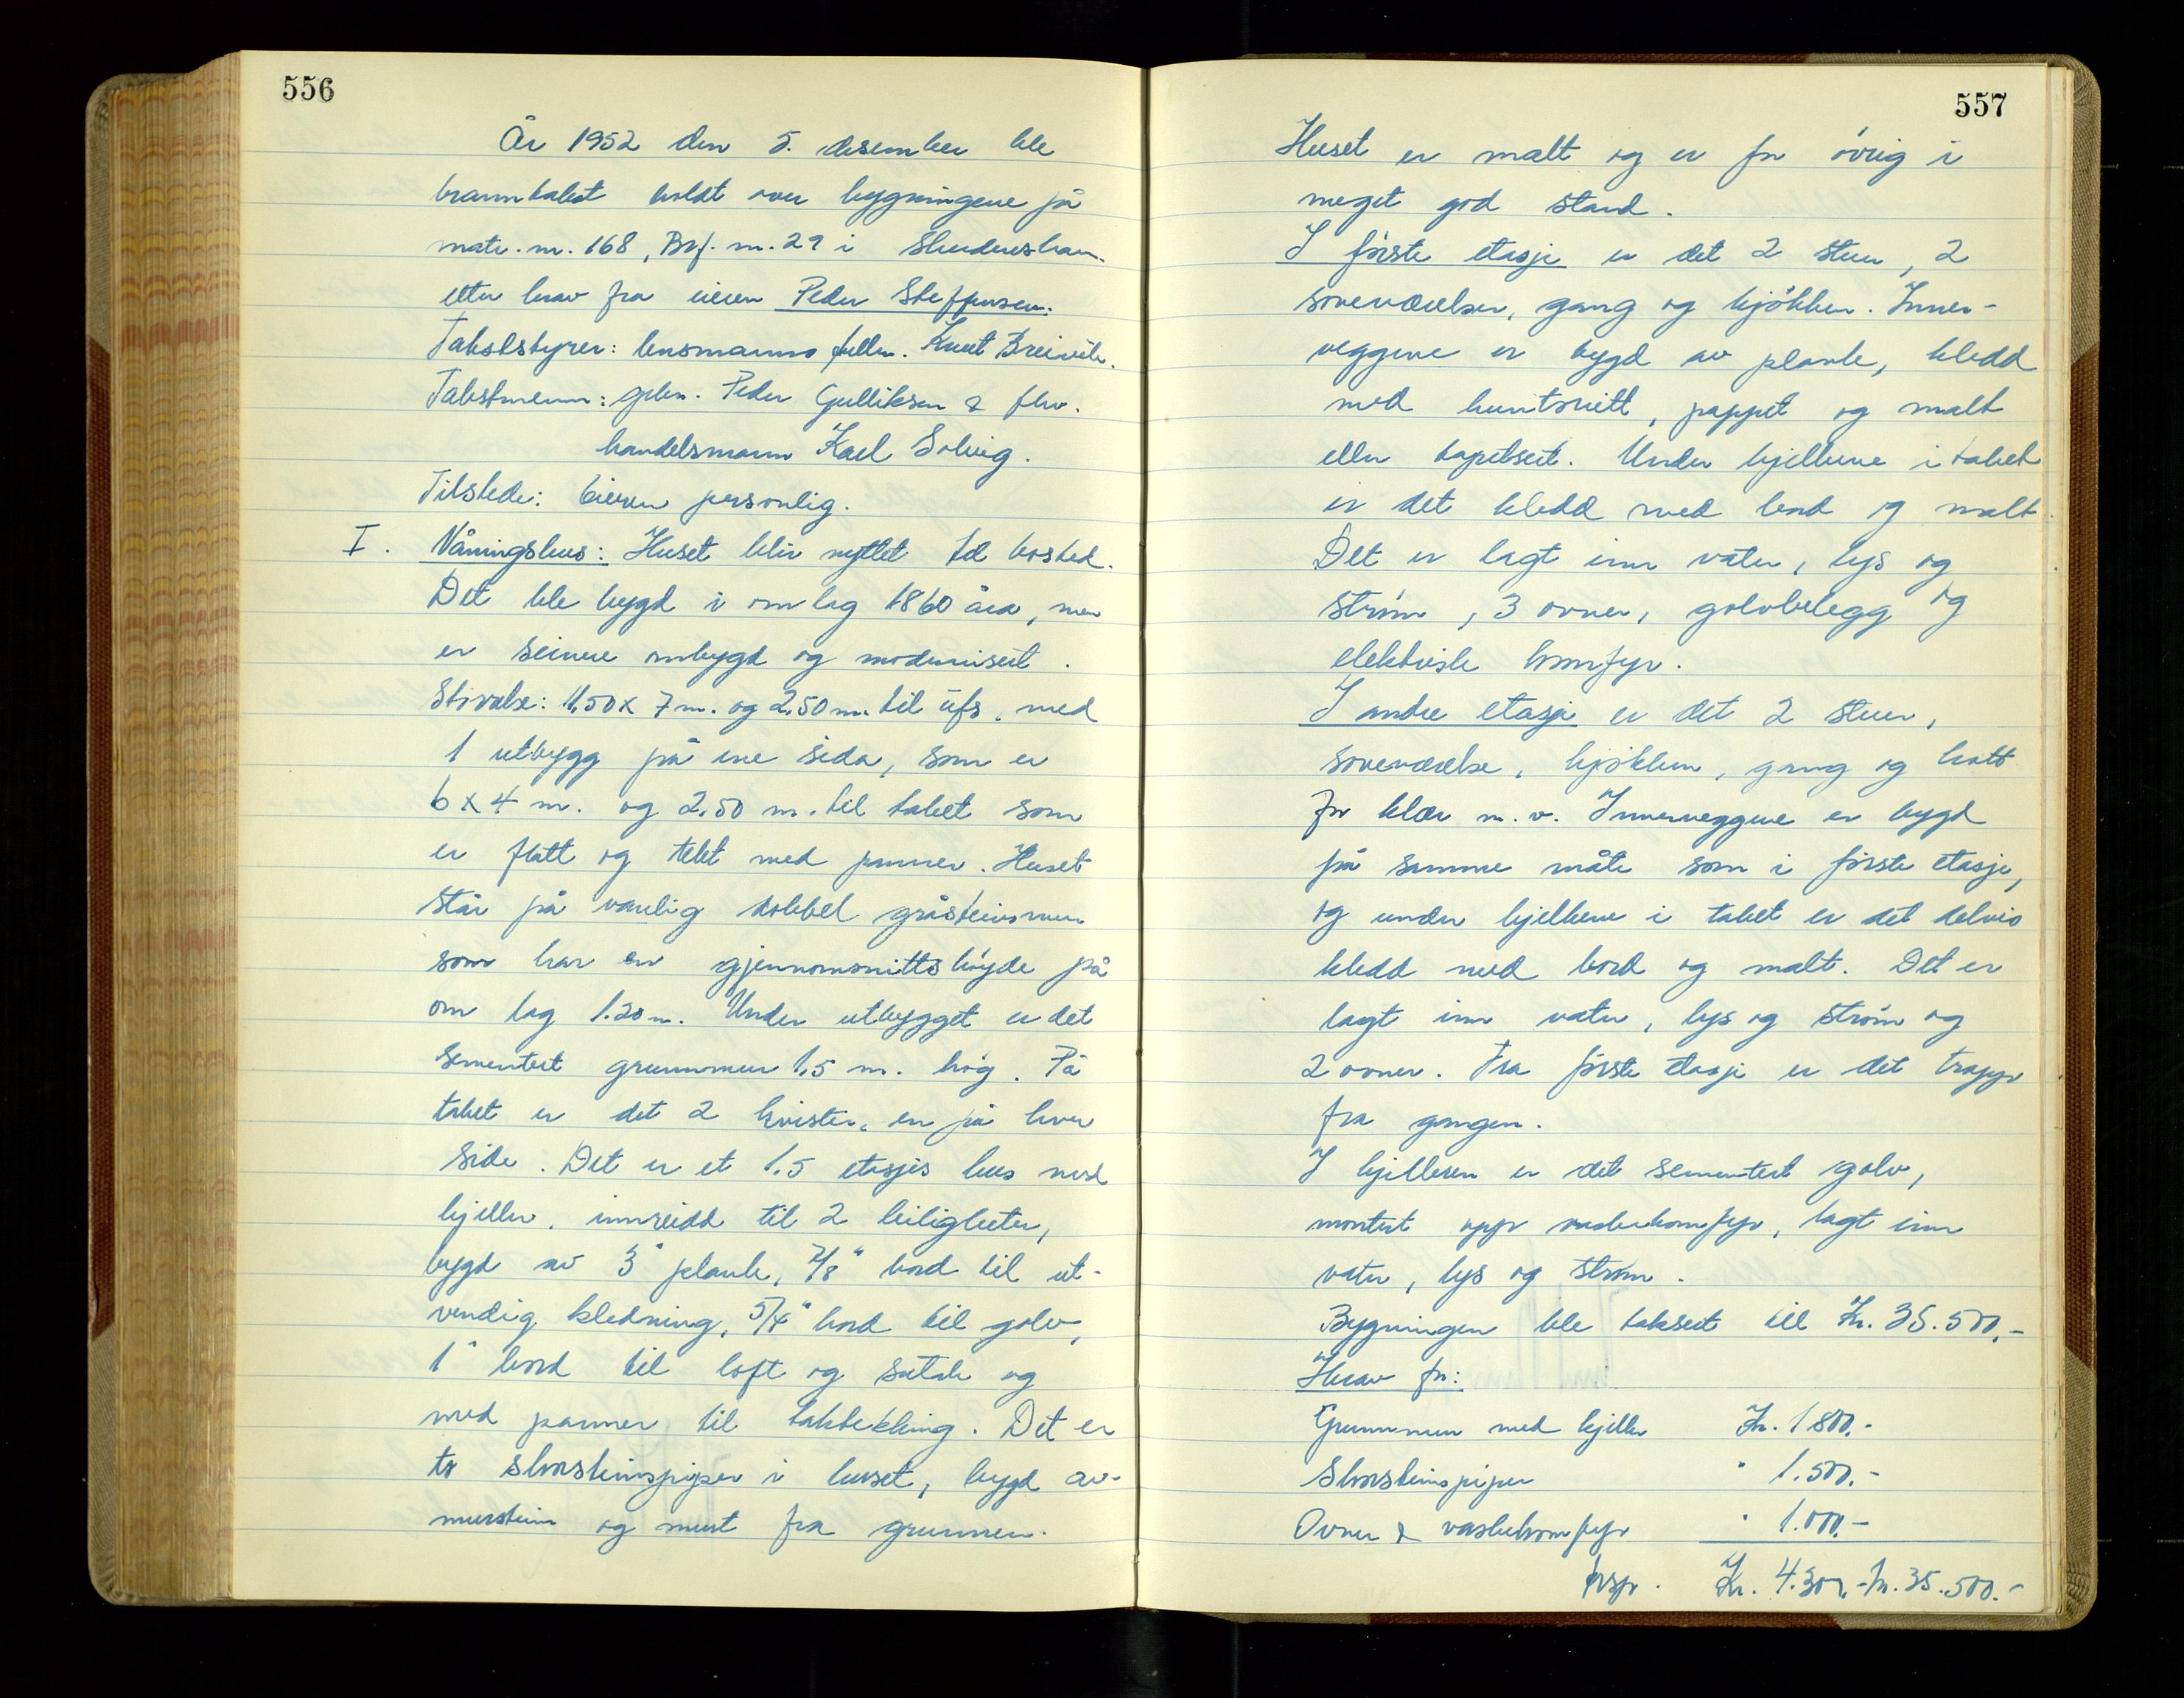 556
År 1952 den 5. desember ble
branntakst holdt over bygningene på
matr. nr. 168, Brf. nr. 29 i Skudeneshavn
etter krav fra eieren Peder Steffensen.
Takststyrer: lensmanns fullm. Knut Breivik.
Takstmenn: Peder Gulliksen & fhv.
handelsmann Karl Solvig.
Tilstede: Eieren personlig.
I. Våningshus: Huset blir nyttet til bosted.
Det ble bygd i om lag 1860 åra, men
er seinere ombygd og modernisert.
Størrelse: 11,50 x 7 m. og 2,50 m. til ufs. med
1 utbygg på ene sida, som er
6 x 4 m. og 2.50 m. til taket som
er flatt og tekt med panner. Huset
står på vanlig dobbel gråsteinsmur
som har en gjennomsnittshøyde på
om lag 1.20 m. Under utbygget er det
sementert grunnmur 1,5 m. høg. På
taket er det 2 kvister, en på hver
side. Det er et 1.5 etasjes hus med
kjeller, innreidd til 2 leiligheter,
bygd av 3" planke, 7/8" bord til ut-
vendig kledning, 5/4" bord til golv,
1" bord til loft og sutak og
med panner til taktekking. Det er
to skorsteinspiper i huset, bygd av
murstein og murt fra grunnen.
557
Huset er malt og er for øvrig i
meget god stand.
I første etasje er det 2 stuer, 2
soveværelser, gang og kjøkken. Inner-
veggene er bygd av planke, kledd
med huntonitt, pappet og malt
eller tapetsert. Under bjelkene i taket
er det kledd med bord og malt.
Det er lagt inn vatn, lys og
strøm, 3 ovner, golvbelegg og
elektrisk komfyr.
I andre etasje er det 2 stuer,
soveværelse, kjøkken, gang og kott
for klær m. v. Innerveggene er bygd
på samme måte som i første etasje,
og under bjelkene i taket er det delvis
kledd med bord og malt. Det er
lagt inn vatn, lys og strøm og
2 ovner. Fra første etasje er det trapp
fra gangen.
I kjelleren er det sementert golv,
montert opp vaskekomfyr, lagt inn
vatn, lys og strøm.
Bygningen ble taksert till Kr. 35.500.-
Herav for:
Grunnmur med kjeller Kr. 1800.-
Skorsteinspiper " 1.500.-
Ovner & vaskekomfyr " 1.000.-
Kr. 4.300.- kr. 35.500.-